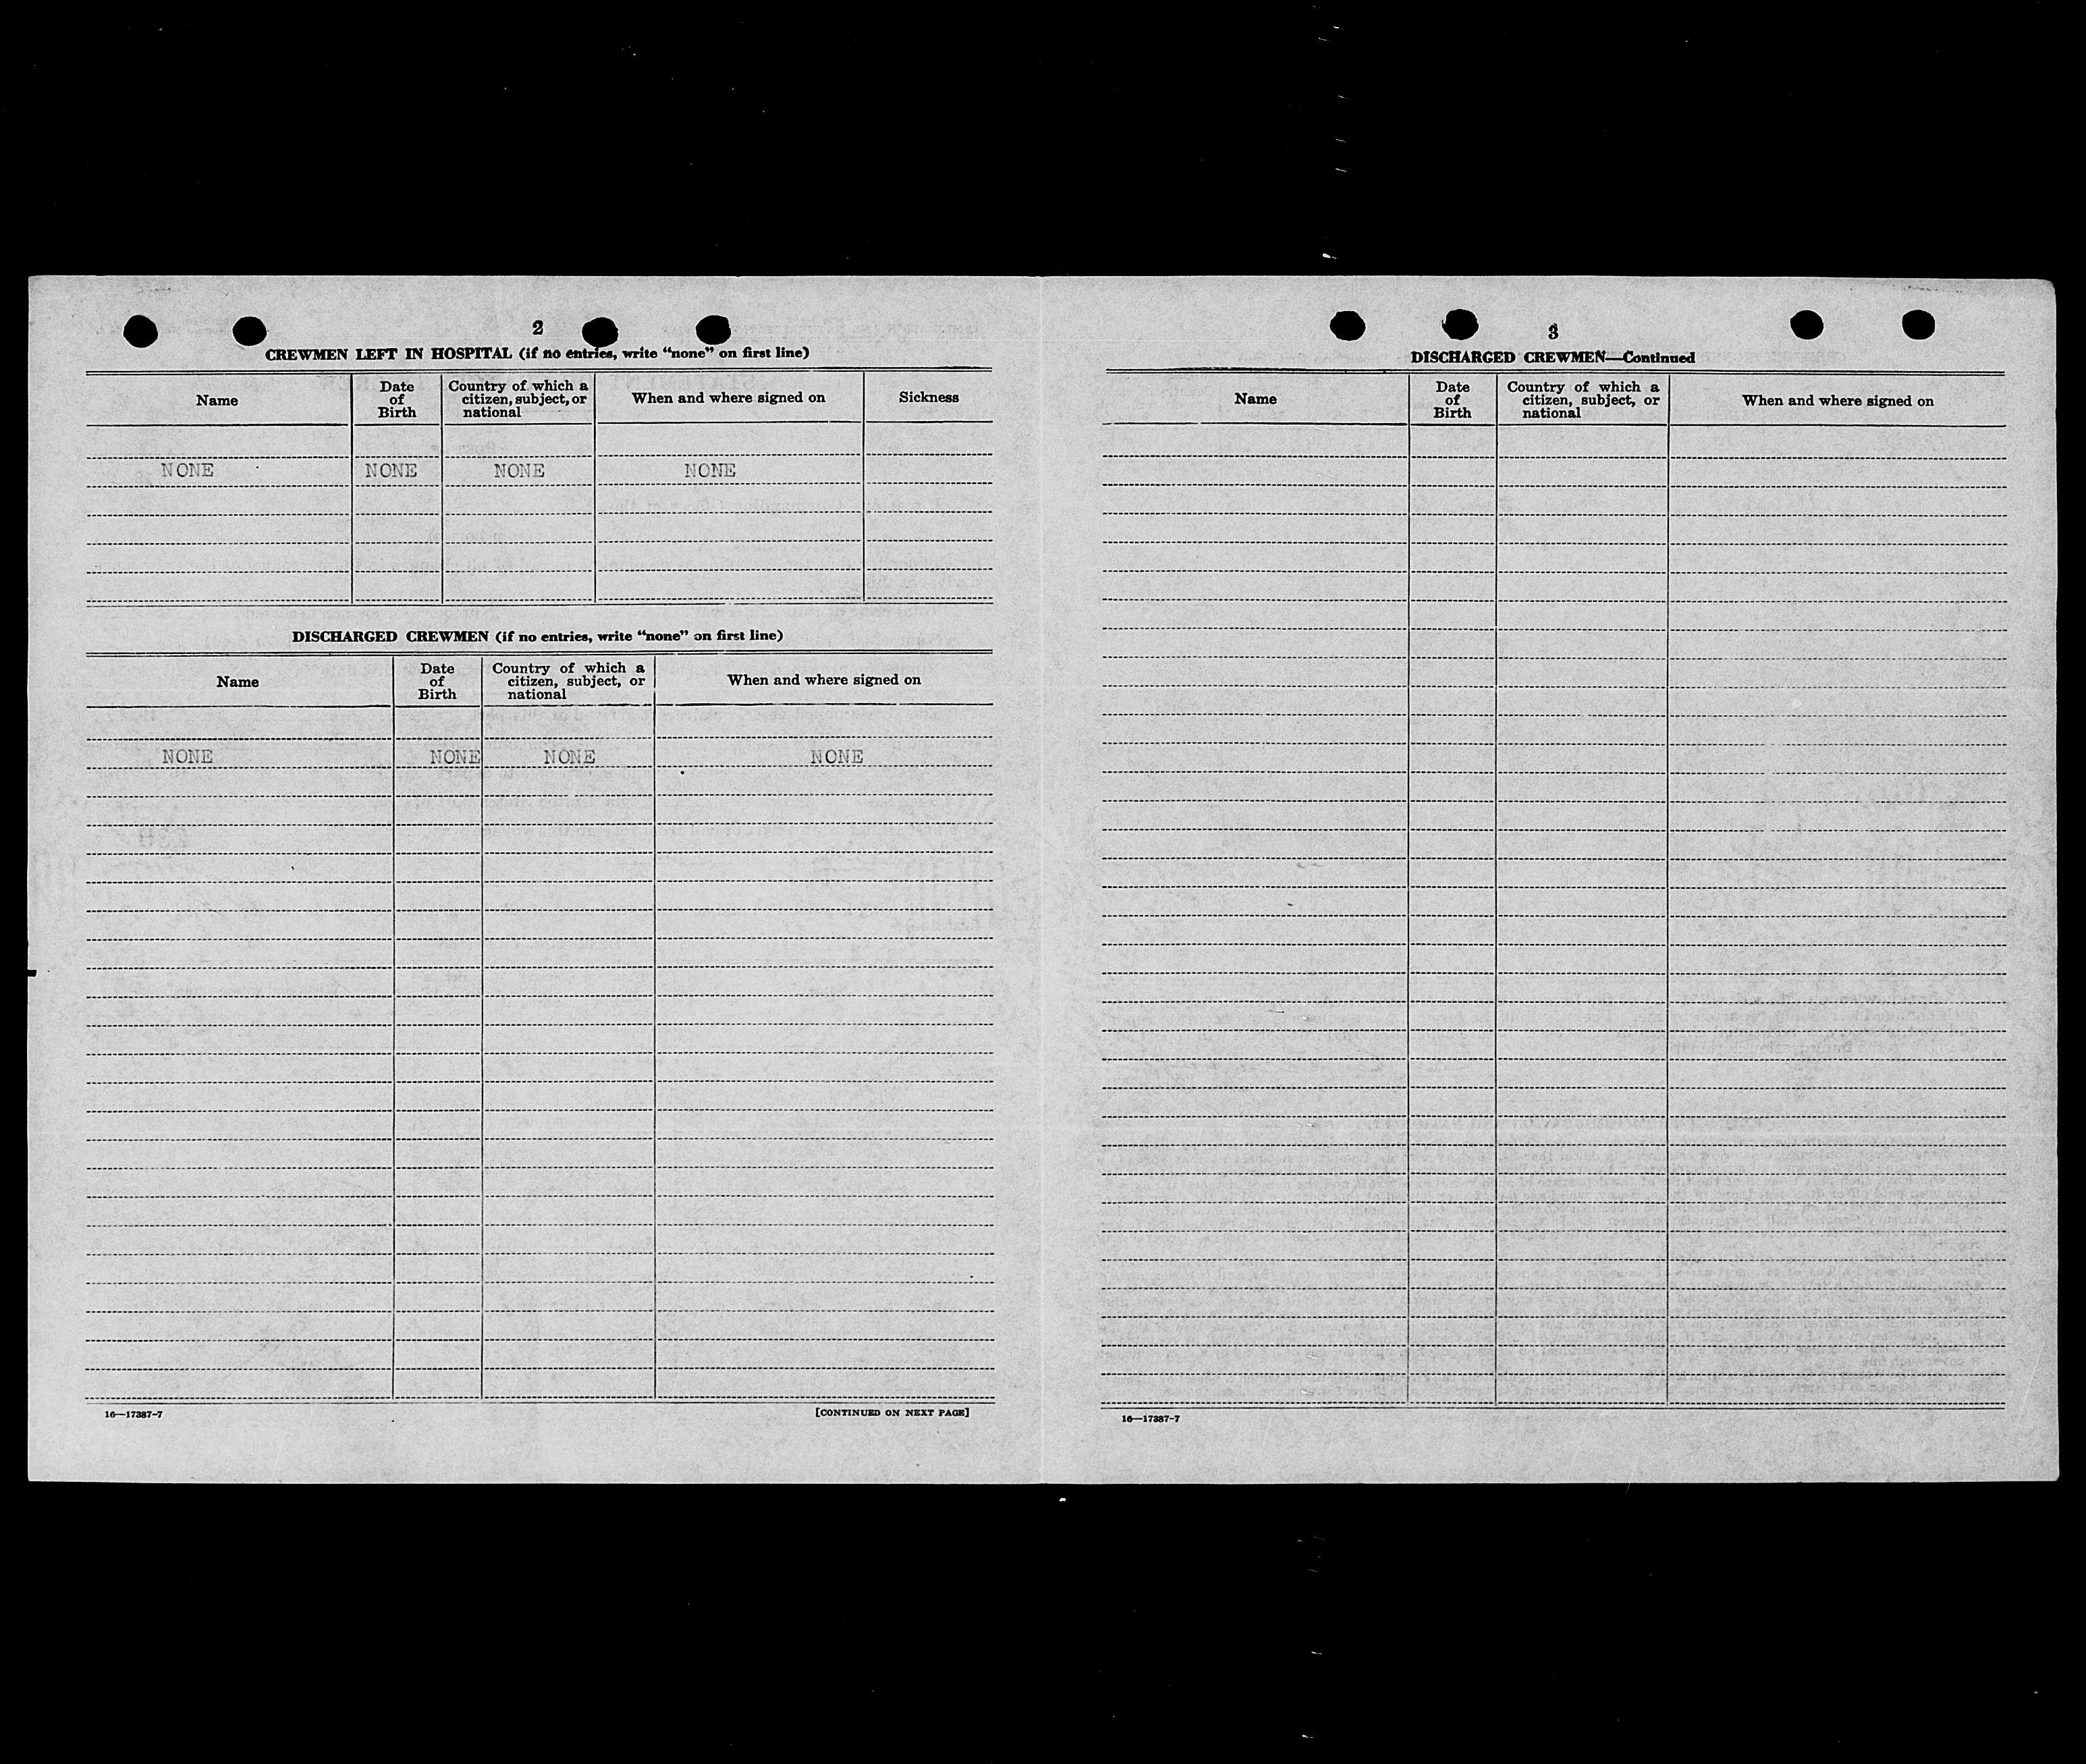 2
CREWMEN LEFT IN HOSPITAL (if no entries, write “none” on first line)
Name
Date
of
Birth
Country of which a
citizen, subject, or
national
When and where signed on
Sickness
NONE NONE NONE NONE
DISCHARGED CREWMEN (if no entries, write “none” on first line)
Name
Date
of
Birth
Country of which a
citizen, subject, or
national
When and where signed on
NONE NONE NONE NONE
16—17387-7
[CONTINUED ON NEXT PAGE]
3
DISCHARGED CREWMEN—Continued
Name
Date
of
Birth
Country of which a
citizen, subject, or
national
When and where signed on
16—17387-7